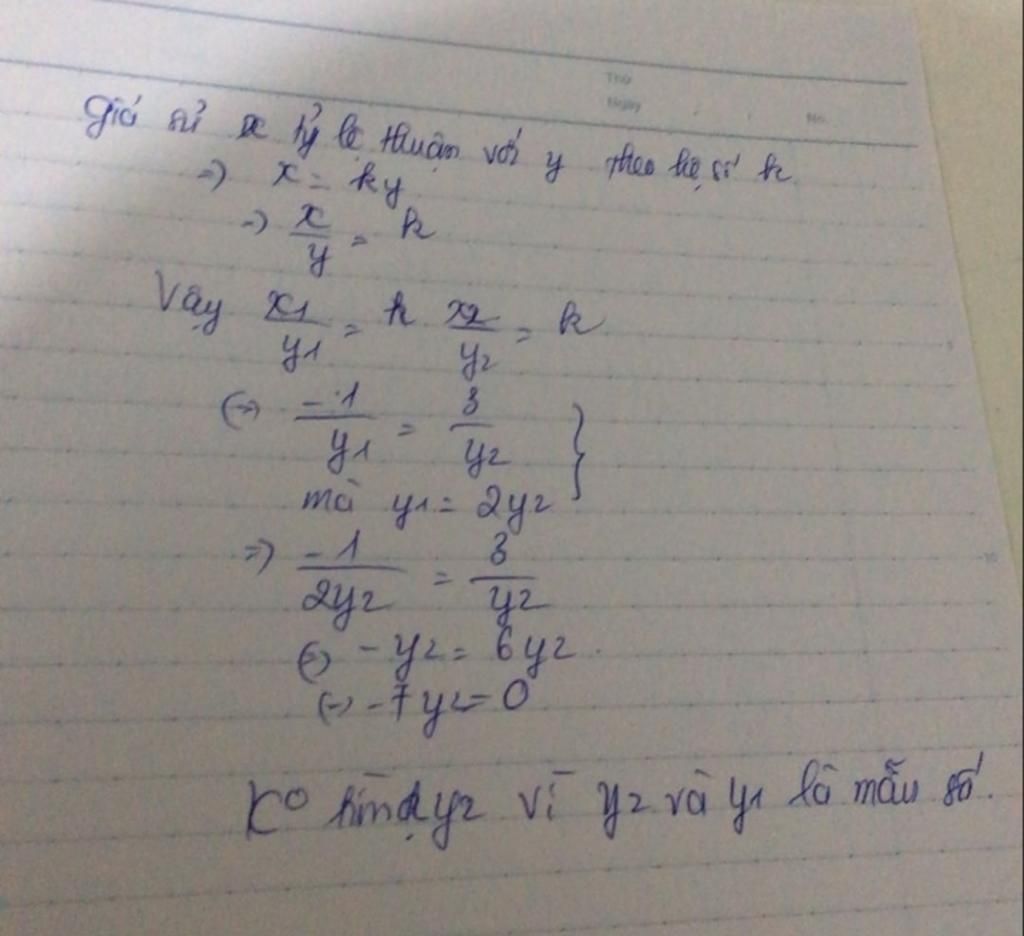 Thứ
Ngày
No.
Giả sử x tỷ lệ thuận với y theo hệ số k.
=> x = ky
=> x/y = k
Vậy x1/y1 = k x2/y2 = k
<=> -1/y1 = 3/y2 }
mà y1 = 2y2
=> -1/2y2 = 3/y2
<=> -y2 = 6y2.
<=> -7y2 = 0
K° tìm đc y2 vì y2 và y1 là mẫu số.